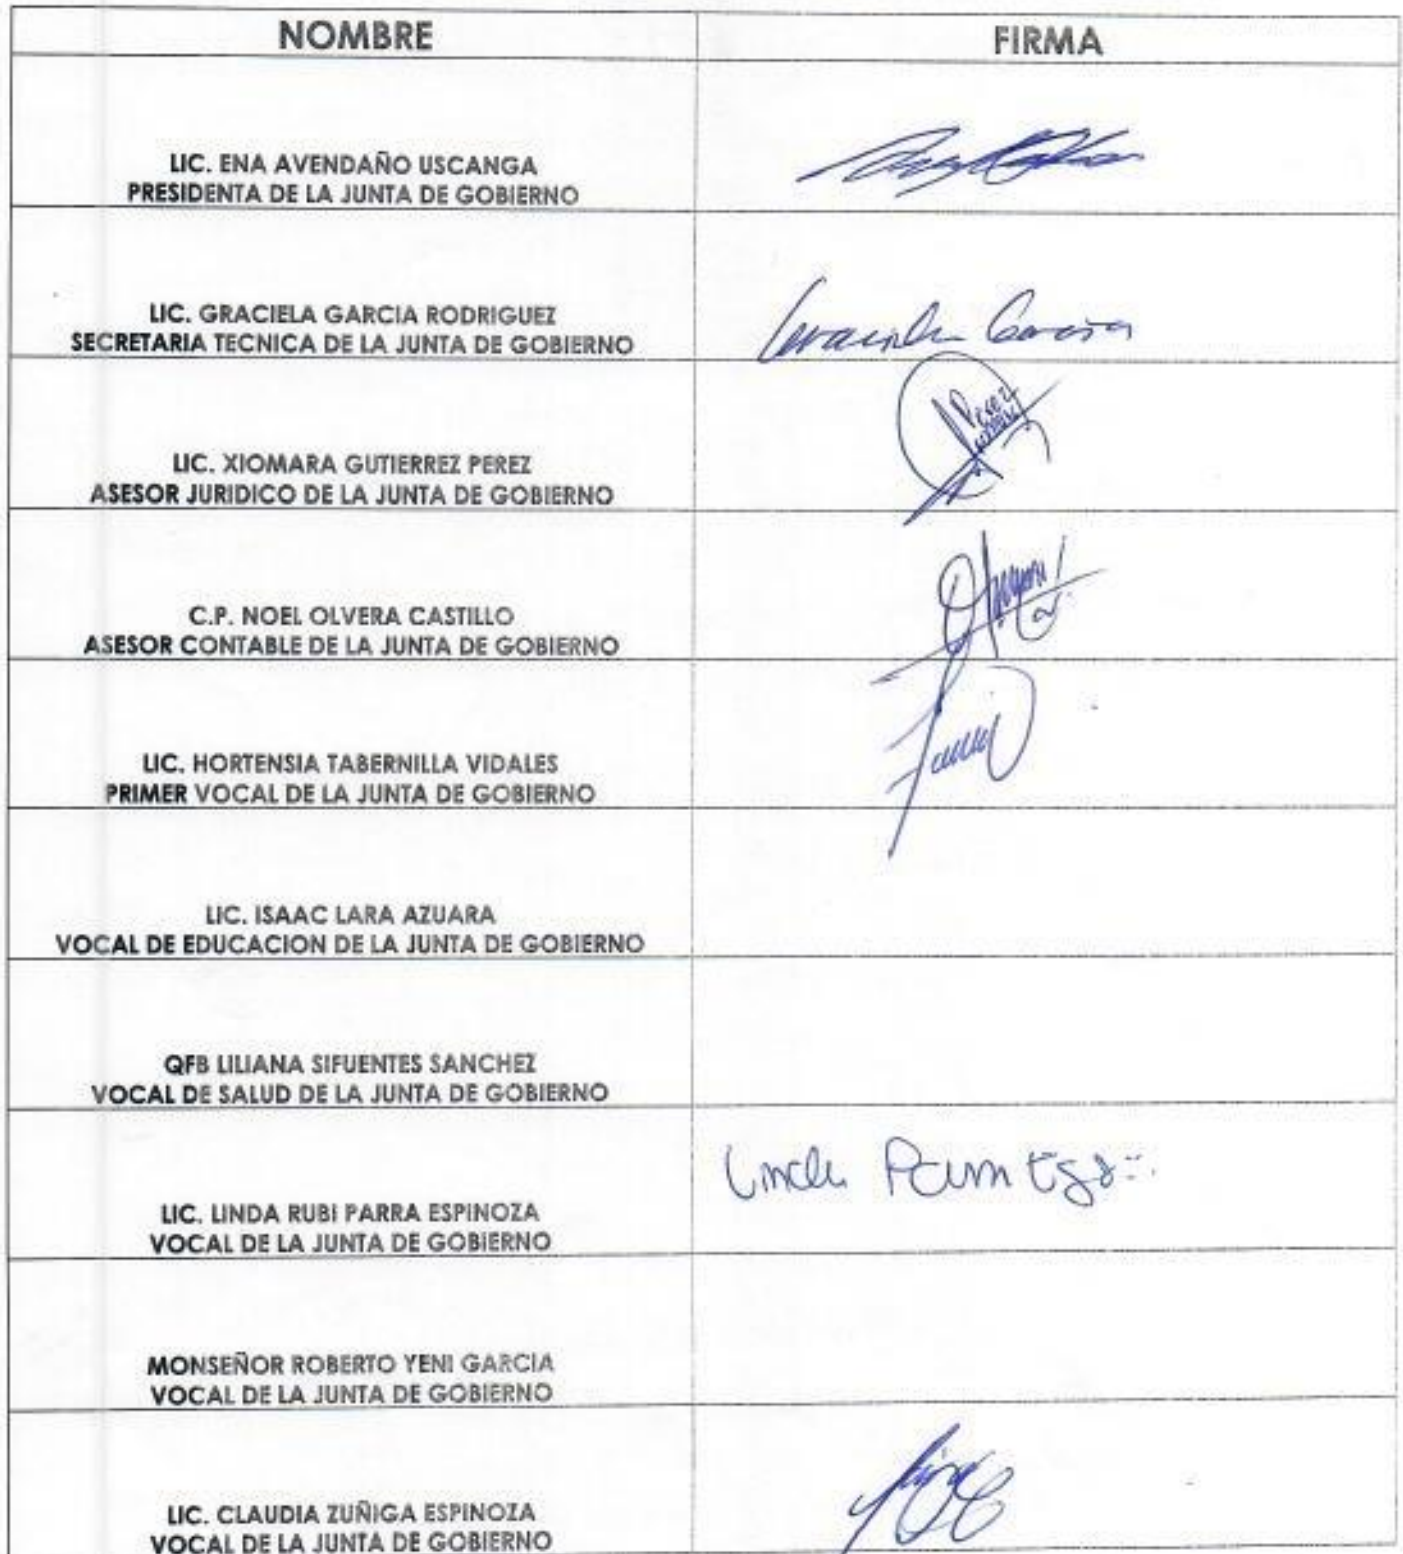 NOMBRE
FIRMA
LIC. ENA AVENDAÑO USCANGA
PRESIDENTA DE LA JUNTA DE GOBIERNO
LIC. GRACIELA GARCIA RODRIGUEZ
SECRETARIA TECNICA DE LA JUNTA DE GOBIERNO
Graciela Garcia
LIC. XIOMARA GUTIERREZ PEREZ
ASESOR JURIDICO DE LA JUNTA DE GOBIERNO
C.P. NOEL OLVERA CASTILLO
ASESOR CONTABLE DE LA JUNTA DE GOBIERNO
LIC. HORTENSIA TABERNILLA VIDALES
PRIMER VOCAL DE LA JUNTA DE GOBIERNO
LIC. ISAAC LARA AZUARA
VOCAL DE EDUCACION DE LA JUNTA DE GOBIERNO
QFB LILIANA SIFUENTES SANCHEZ
VOCAL DE SALUD DE LA JUNTA DE GOBIERNO
LIC. LINDA RUBI PARRA ESPINOZA
VOCAL DE LA JUNTA DE GOBIERNO
Linda Parra
MONSEÑOR ROBERTO YENI GARCIA
VOCAL DE LA JUNTA DE GOBIERNO
LIC. CLAUDIA ZUÑIGA ESPINOZA
VOCAL DE LA JUNTA DE GOBIERNO